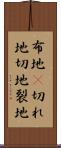 布地 切れ
地切地裂地